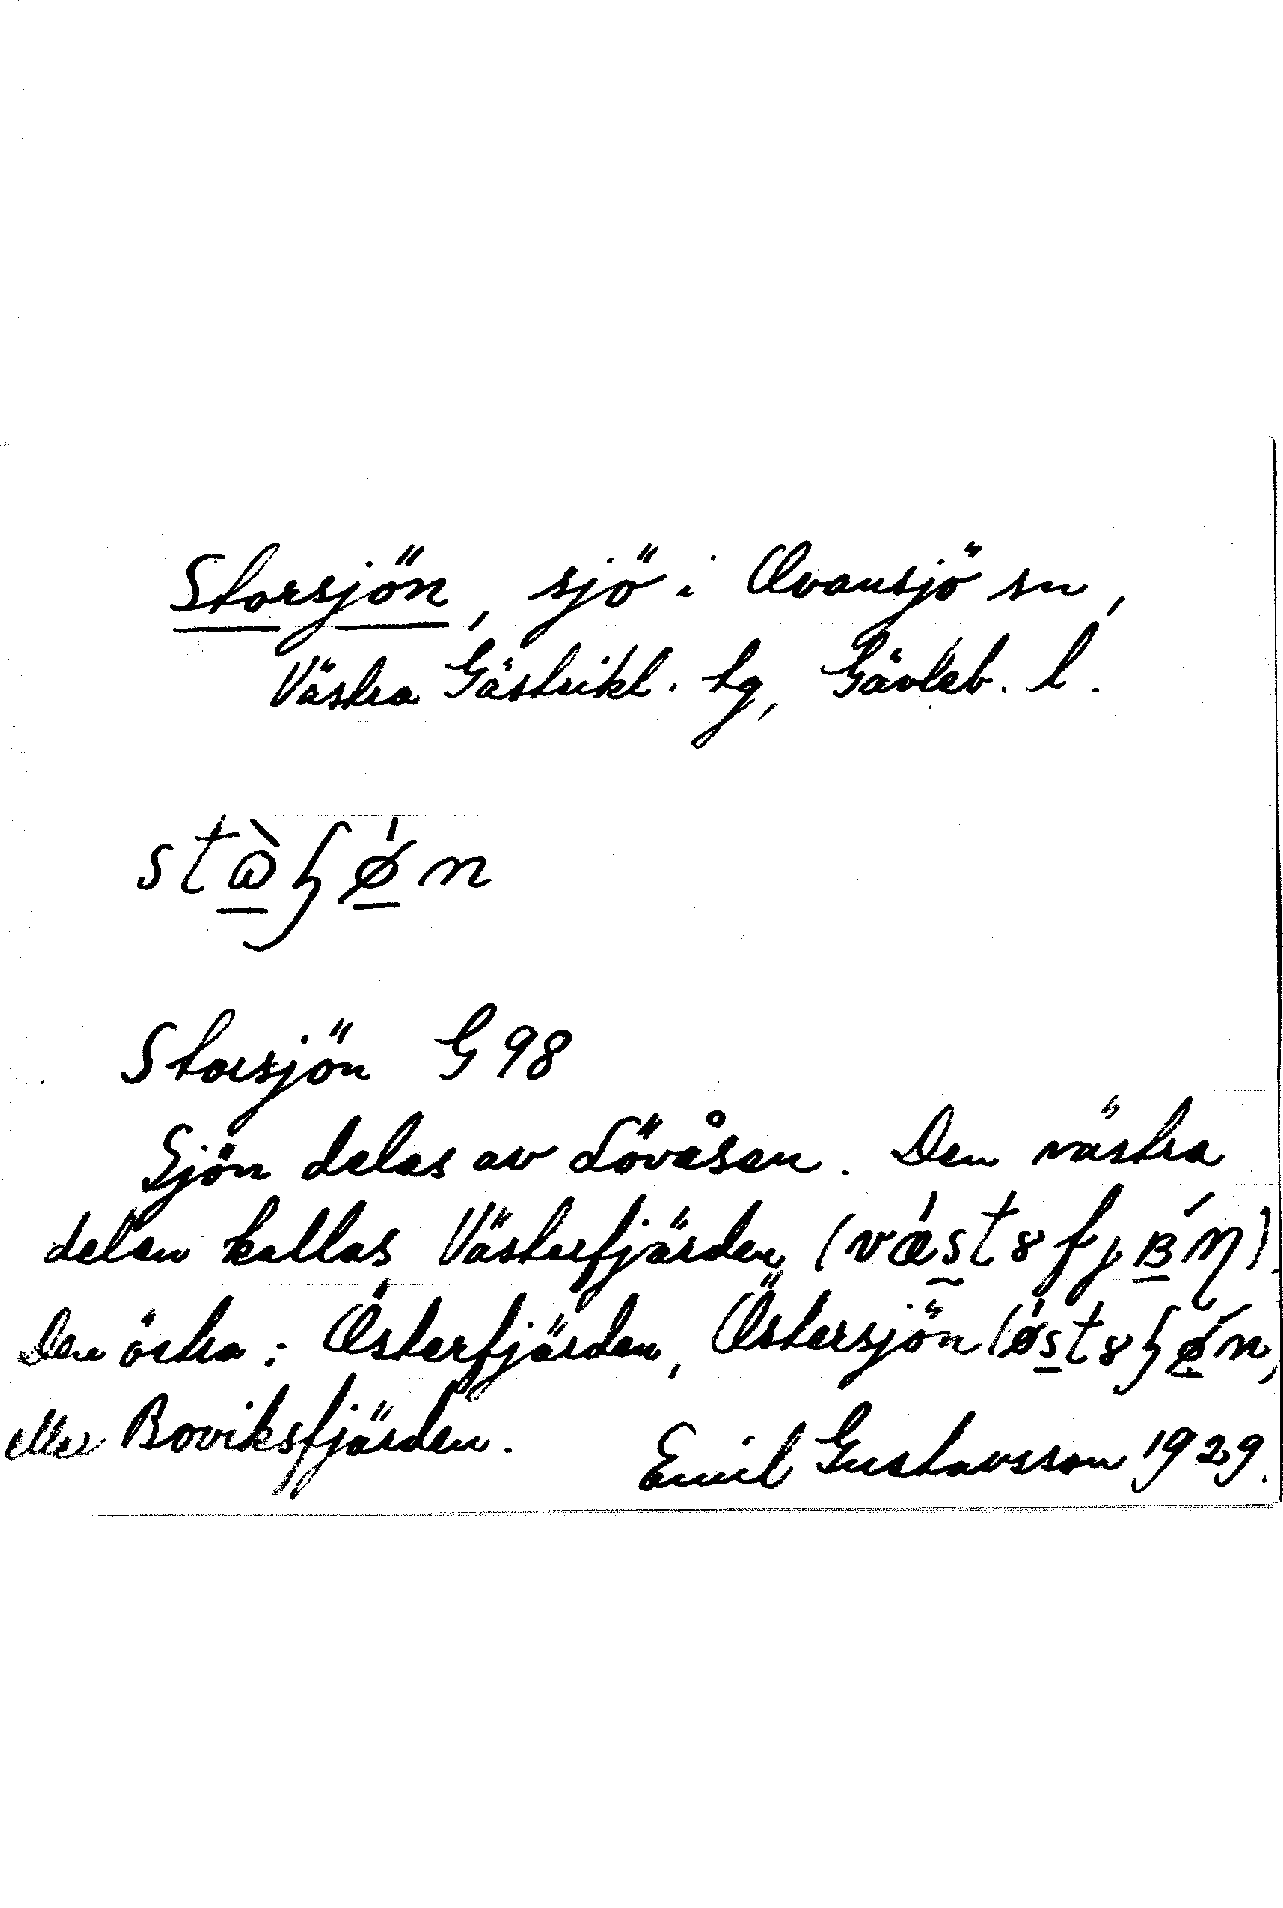 Storsjön, sjö i Ovansjö sn,
Västra Gästrikl. tg, Gävleb. l.
Storsjön G 98
Sjön delas av Lövåsen. Den västra
delen kallas Västerfjärden
Den östra: Österfjärden, Östersjön
eller Boviksfjärden.
Emil Gustavsson 1929.